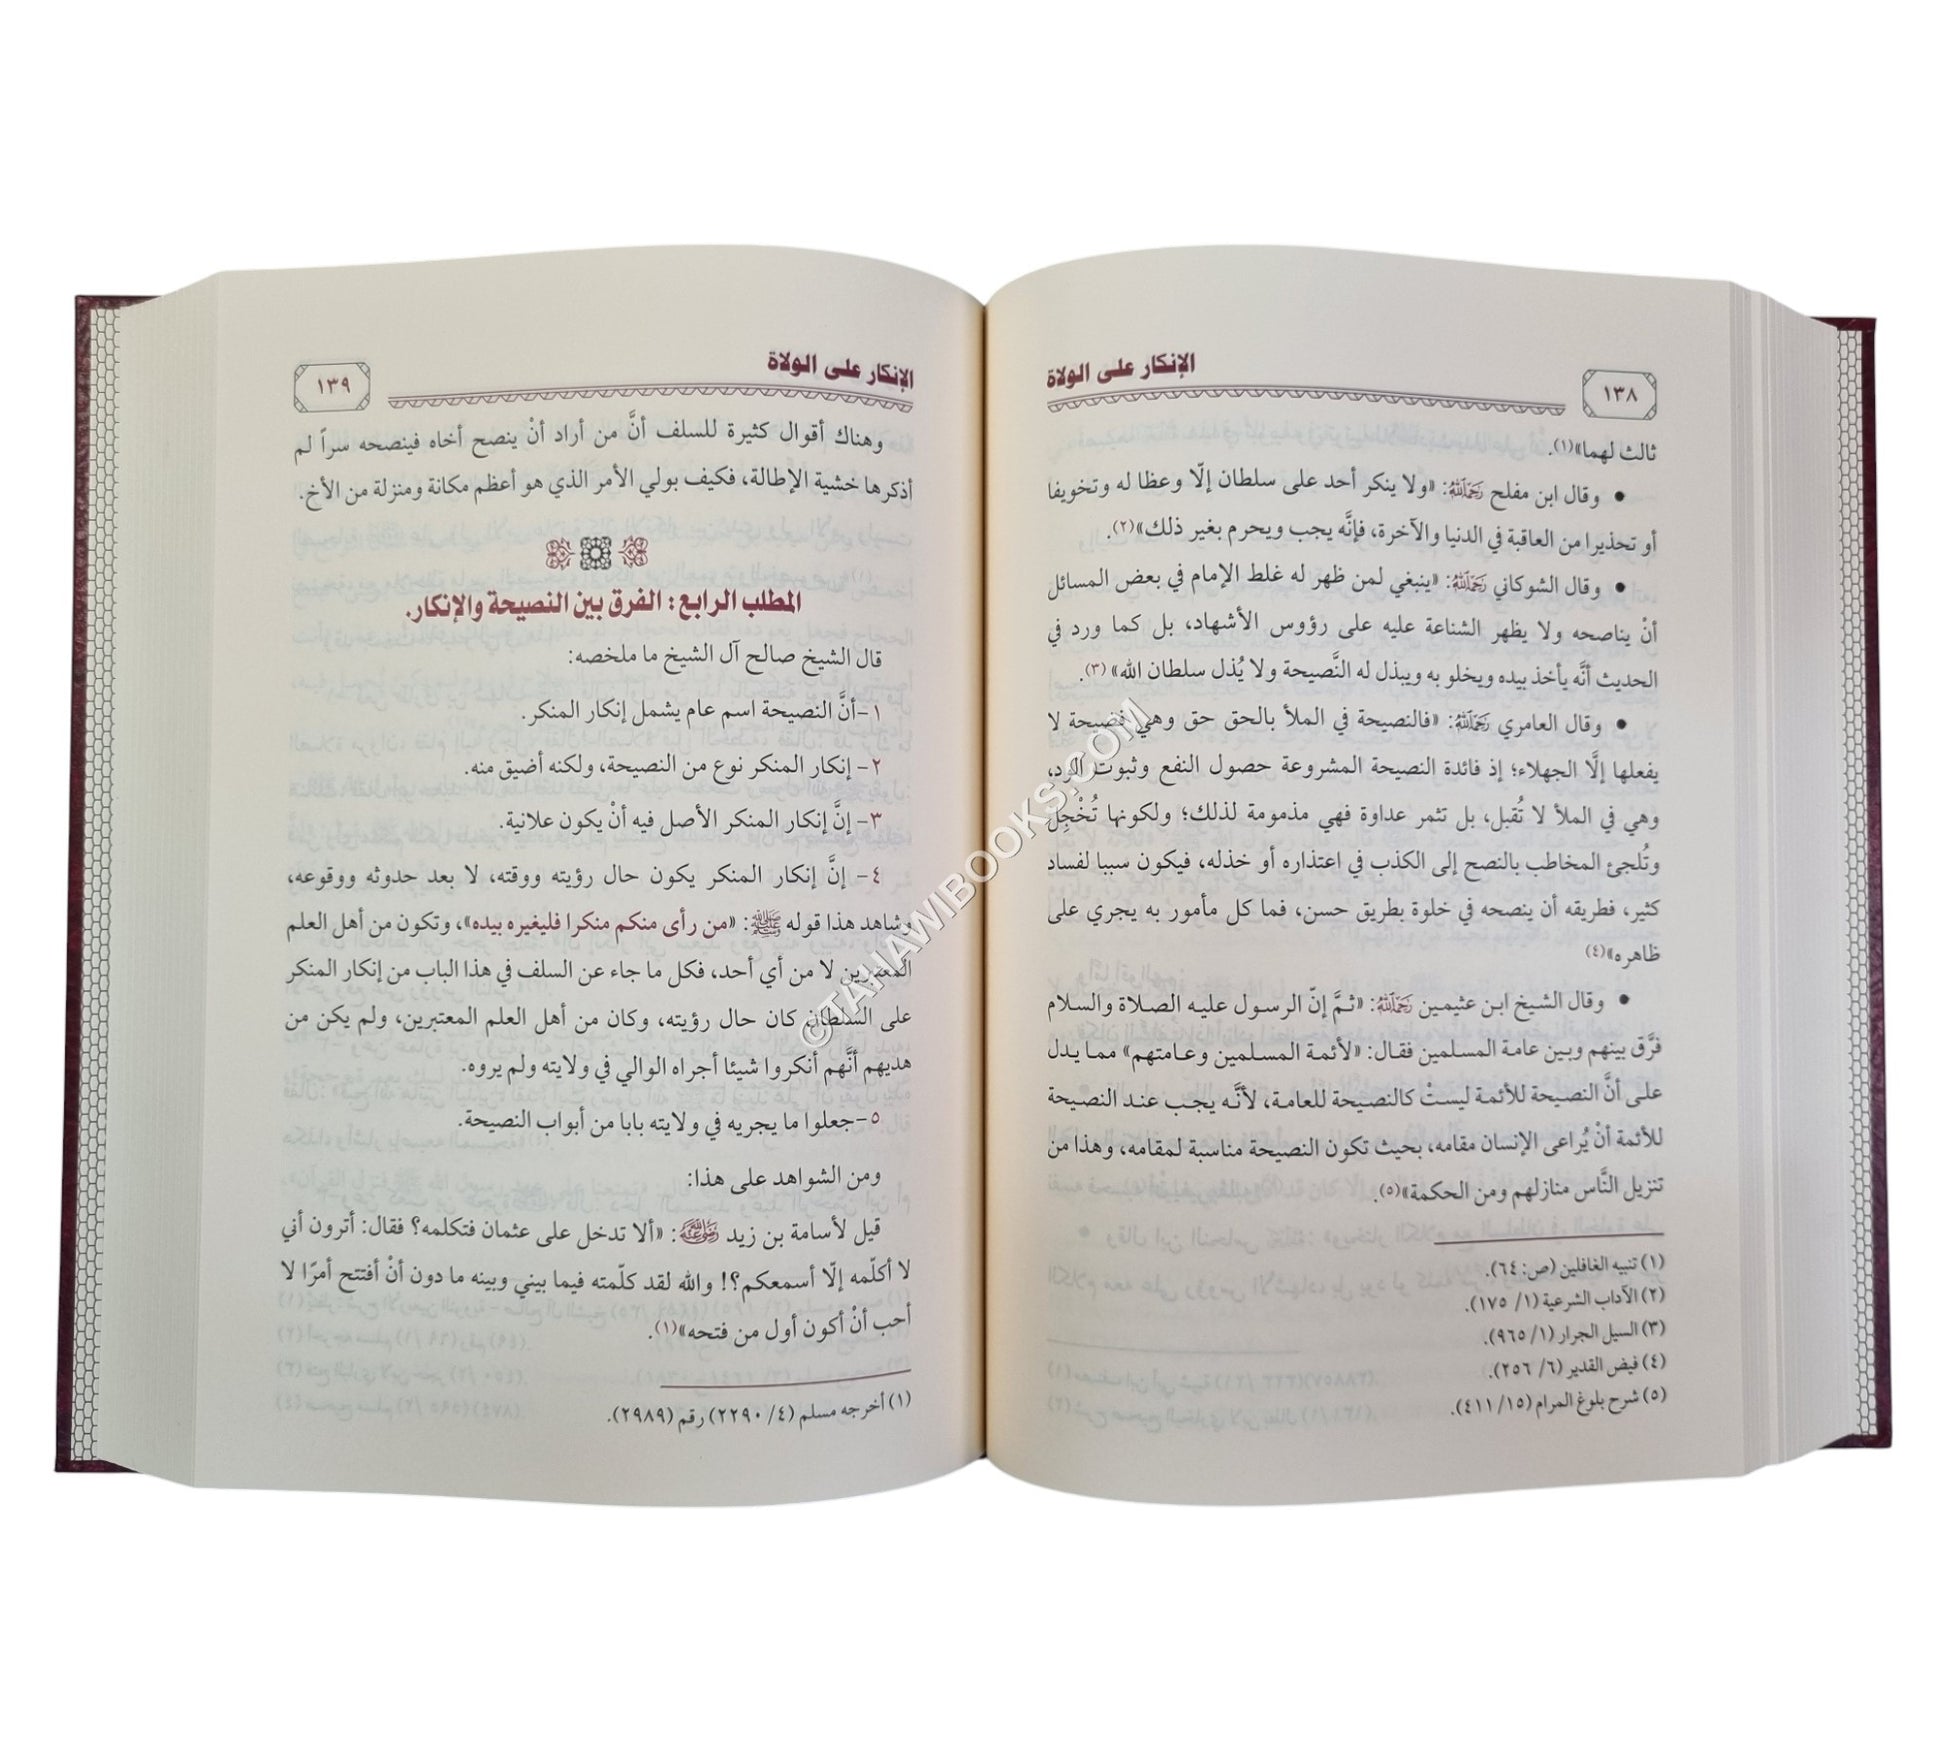 الإنكار على الولاة
١٣٨
ثالث لهما»(١).
• وقال ابن مفلح رَحِمَهُ اللَّهُ: «ولا ينكر أحد على سلطان إلّا وعظا له وتخويفا
أو تحذيرا من العاقبة في الدنيا والآخرة، فإنَّه يجب ويحرم بغير ذلك»(٢).
• وقال الشوكاني رَحِمَهُ اللَّهُ: «ينبغي لمن ظهر له غلط الإمام في بعض المسائل
أنْ يناصحه ولا يظهر الشناعة عليه على رؤوس الأشهاد، بل كما ورد في
الحديث أنَّه يأخذ بيده ويخلو به ويبذل له النَّصيحة ولا يُذل سلطان الله»(٣).
• وقال العامري رَحِمَهُ اللَّهُ: «فالنصيحة في الملأ بالحق حق وهي فضيحة لا
يفعلها إلَّا الجهلاء؛ إذ فائدة النصيحة المشروعة حصول النفع وثبوت الود،
وهي في الملأ لا تُقبل، بل تثمر عداوة فهي مذمومة لذلك؛ ولكونها تُخْجِل
وتُلجئ المخاطب بالنصح إلى الكذب في اعتذاره أو خذله، فيكون سببا لفساد
كثير، فطريقه أن ينصحه في خلوة بطريق حسن، فما كل مأمور به يجري على
ظاهره»(٤)
• وقال الشيخ ابن عثيمين رَحِمَهُ اللَّهُ: «ثمَّ إنّ الرسول عليه الصلاة والسلام
فرَّق بينهم وبين عامة المسلمين فقال: «لأئمة المسلمين وعامتهم» مما يدل
على أنَّ النصيحة للأئمة ليستْ كالنصيحة للعامة، لأنَّه يجب عند النصيحة
للأئمة أنْ يُراعى الإنسان مقامه، بحيث تكون النصيحة مناسبة لمقامه، وهذا من
تنزيل النَّاس منازلهم ومن الحكمة»(٥).
(١) تنبيه الغافلين (ص: ٦٤).
(٢) الآداب الشرعية (١/ ١٧٥).
(٣) السيل الجرار (١/ ٩٦٥).
(٤) فيض القدير (٦/ ٢٥٦).
(٥) شرح بلوغ المرام (١٥/ ٤١١).
الإنكار على الولاة
١٣٩
وهناك أقوال كثيرة للسلف أنَّ من أراد أنْ ينصح أخاه فينصحه سراً لم
أذكرها خشية الإطالة، فكيف بولي الأمر الذي هو أعظم مكانة ومنزلة من الأخ.
المطلب الرابع: الفرق بين النصيحة والإنكار.
قال الشيخ صالح آل الشيخ ما ملخصه:
١-أنَّ النصيحة اسم عام يشمل إنكار المنكر.
٢- إنكار المنكر نوع من النصيحة، ولكنه أضيق منه.
٣- إنَّ إنكار المنكر الأصل فيه أنْ يكون علانية.
٤- إنَّ إنكار المنكر يكون حال رؤيته ووقته، لا بعد حدوثه ووقوعه،
وشاهد هذا قوله ﷺ: «من رأى منكم منكرا فليغيره بيده»، وتكون من أهل العلم
المعتبرين لا من أي أحد، فكل ما جاء عن السلف في هذا الباب من إنكار المنكر
على السلطان كان حال رؤيته، وكان من أهل العلم المعتبرين، ولم يكن من
هديهم أنَّهم أنكروا شيئا أجراه الوالي في ولايته ولم يروه.
٥-جعلوا ما يجريه في ولايته بابا من أبواب النصيحة.
ومن الشواهد على هذا:
قيل لأسامة بن زيد رَضِيَ اللَّهُ عَنْهُ: «ألا تدخل على عثمان فتكلمه؟ فقال: أترون أني
لا أكلّمه إلّا أسمعكم؟! والله لقد كلّمته فيما بيني وبينه ما دون أنْ أفتتح أمرًا لا
أحب أنْ أكون أول من فتحه»(١).
(١) أخرجه مسلم (٤/ ٢٢٩٠) رقم (٢٩٨٩).
©TAHAWIBOOKS.COM